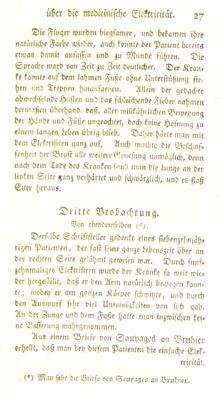 über die medicinische Elektricität. 27
Die Finger wurden biegsamer, und bekamen ihre
natürliche Farbe wieder, auch konnte der Patient bereits
etwas damit anfassen und zu Munde führen. Die
Sprache ward von Zeit zu Zeit deutlicher. Der Kran-
ke konnte auf dem lahmen Fuße ohne Unterstützung ste-
hen und Treppen hinaufgehen. Allein der gedachte
abwechselnde Husten und das schleichende Fieber nahmen
dermaßen überhand, daß, aller willkührlichen Bewegung
der Hände und Füße ungeachtet, doch keine Hofnung zu
einem langen Leben übrig blieb. Daher hörte man mit
dem Elektrisiren ganz auf. Auch machte die Beschaf-
fenheit der Brust alle weitere Genesung unmöglich, denn
nach dem Tode des Kranken fand man die Lunge an der
linken Seite ganz verhärtet und schwärzlich, und es floß
Eiter heraus.
Dritte Beobachtung.
Von ebendemselben (*).
Derselbe Schriftsteller gedenkt eines siebenzehnjäh-
rigen Patienten, der fast seine ganze Lebenszeit über an
der rechten Seite gelähmt gewesen war. Durch funf-
zehnmaliges Elektrisiren wurde der Kranke so weit wie-
der hergestellt, daß er den Arm natürlich bewegen konn-
te; wobey er am ganzen Körper schwitzte, und durch
den Auswurf sehr viel Unreinigkeiten von sich gab.
An der Zunge und dem Fuße hatte man inzwischen kei-
ne Besserung wahrgenommen.
Aus einem Briefe von Sauvages an Bruhier
erhellt, daß man bey diesem Patienten die einfache Elek-
tricität,
(*) Man sehe die Briefe von Sauvages an Bruhier.